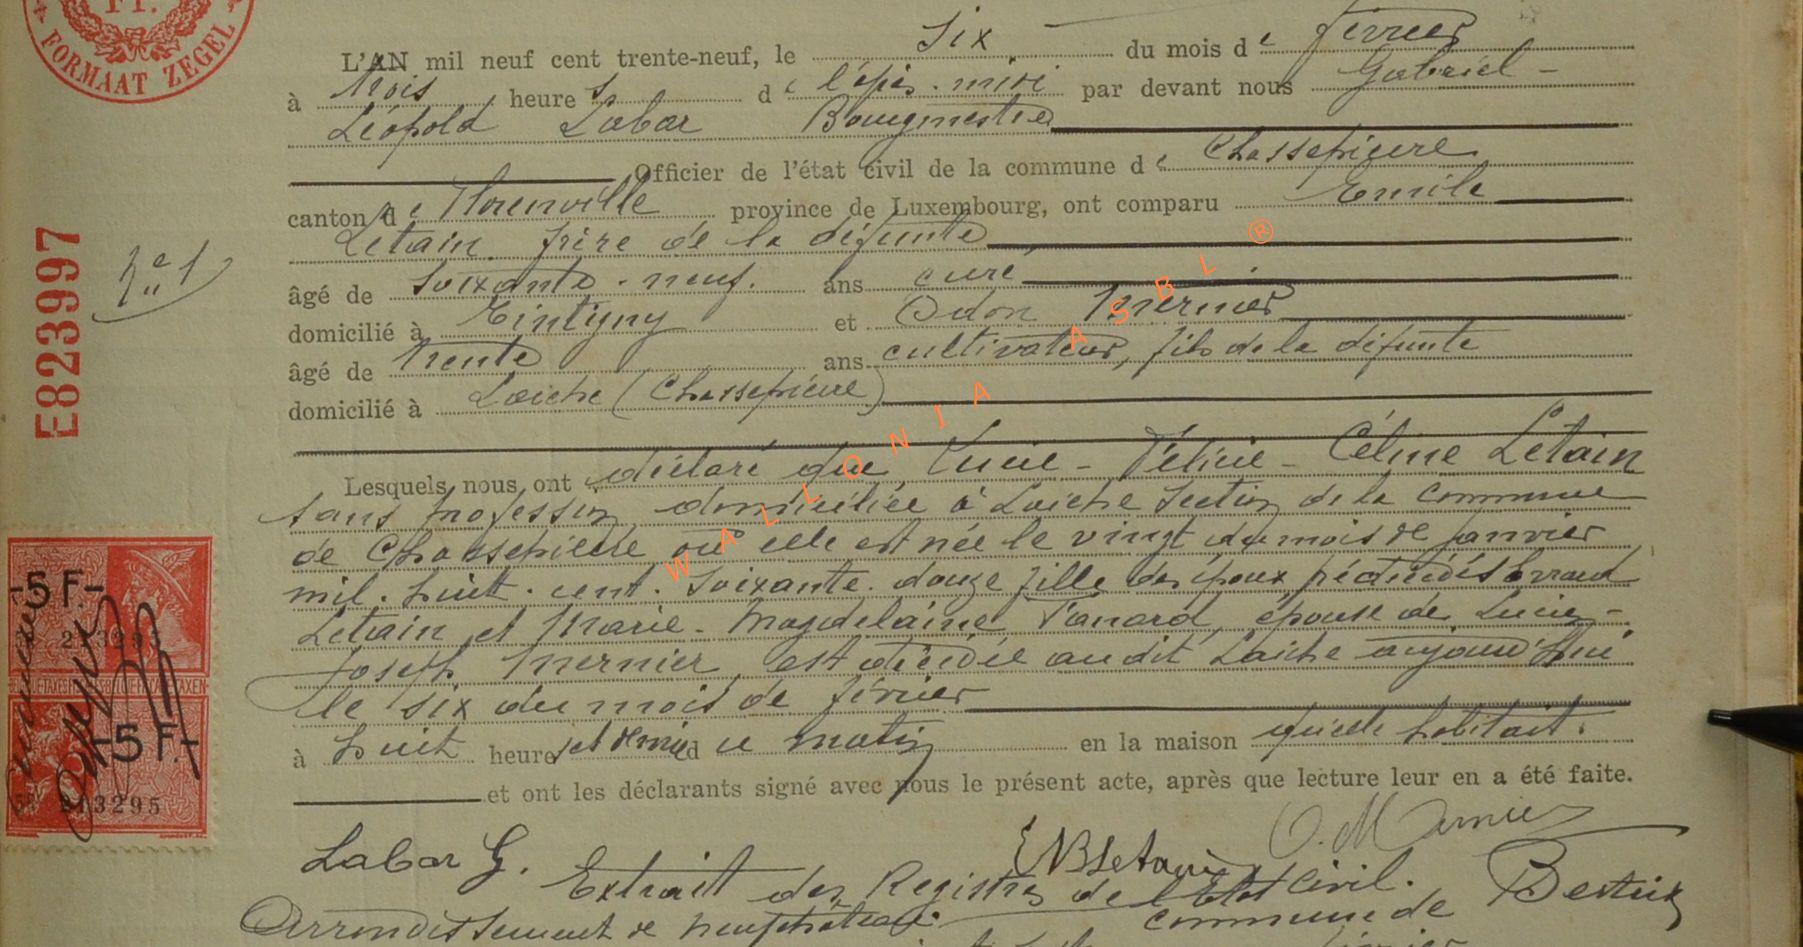 FORMAAT ZEGEL
L'AN mil neuf cent trente-neuf, le Six du mois de février
à trois heures de l'après-midi par devant nous Gabriel-
Léopold Labar Bourgmestre
Officier de l'état civil de la commune de Chassepierre
canton de Florenville province de Luxembourg, ont comparu Emile
Letain frère de la défunte
âgé de soixante-neuf ans curé
domicilié à Tintigny et Odon Mernier
âgé de trente ans cultivateur, fils de la défunte
domicilié à Laiche (Chassepierre)
N° 1
E823997
Lesquels nous ont déclaré que Lucie-Félicie-Céline Letain
sans profession domiciliée à Laiche Section de la commune
de Chassepierre où elle est née le vingt du mois de janvier
mil-huit-cent-soixante-douze fille des époux prédécédés
Letain et Marie-Magdelaine Panard, épouse de Lucien-
Joseph Mernier est décédée audit Laiche aujourd'hui
le six du mois de février
à huit heures et demie du matin en la maison qu'elle habitait.
et ont les déclarants signé avec nous le présent acte, après que lecture leur en a été faite.
-5 F.-
-5 F.-
213295
Labar G.
O. Mernier
Extrait des Registres de l'Etat Civil.
Arrondissement de Neufchâteau. commune de
WALLONIA ASBL ®